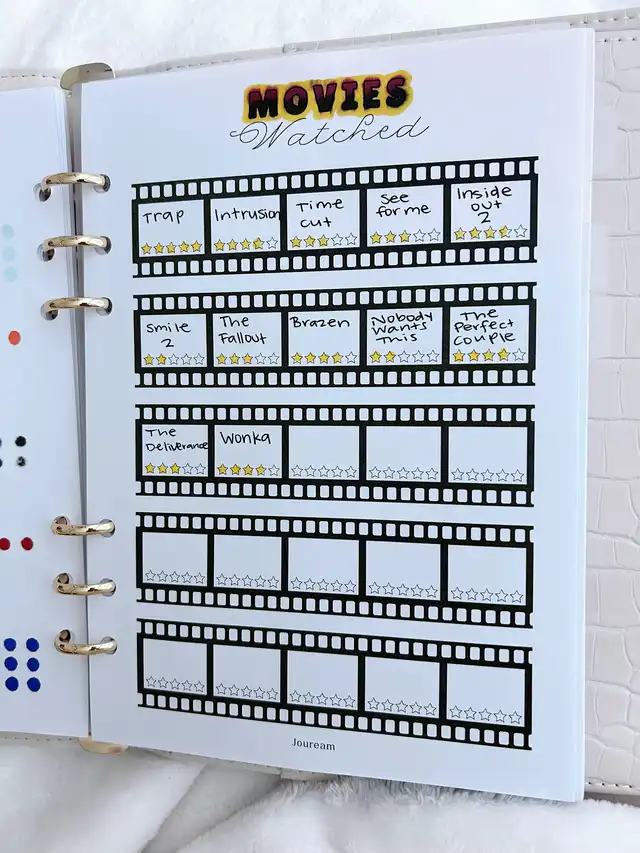 MOVIES
Watched
Trap
Intrusion
Time
cut
See
for me
Inside
out
2
Smile
2
The
Fallout
Brazen
Nobody
Wants
This
The
Perfect
couple
The
Deliverance
Wonka
Jouream